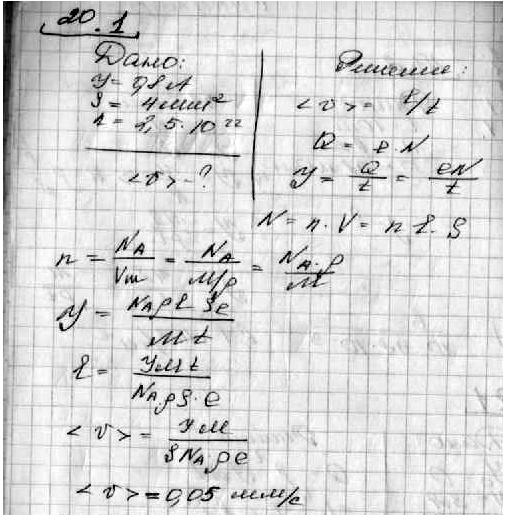 20.1
Дано:
У = 0,8 А
S = 4 мм²
n = 2,5 · 10²²
<v> - ?
Решение:
<v> = ℓ/t
Q = e · N
У = Q/t = eN/t
N = n · V = n ℓ · S
n = N_A/V_m = N_A/(M/ρ) = N_A · ρ/M
У = N_A ρ ℓ S e/(M t)
ℓ = У M t/(N_A ρ S · e)
<v> = У M/(S N_A ρ e)
<v> = 0,05 мм/с